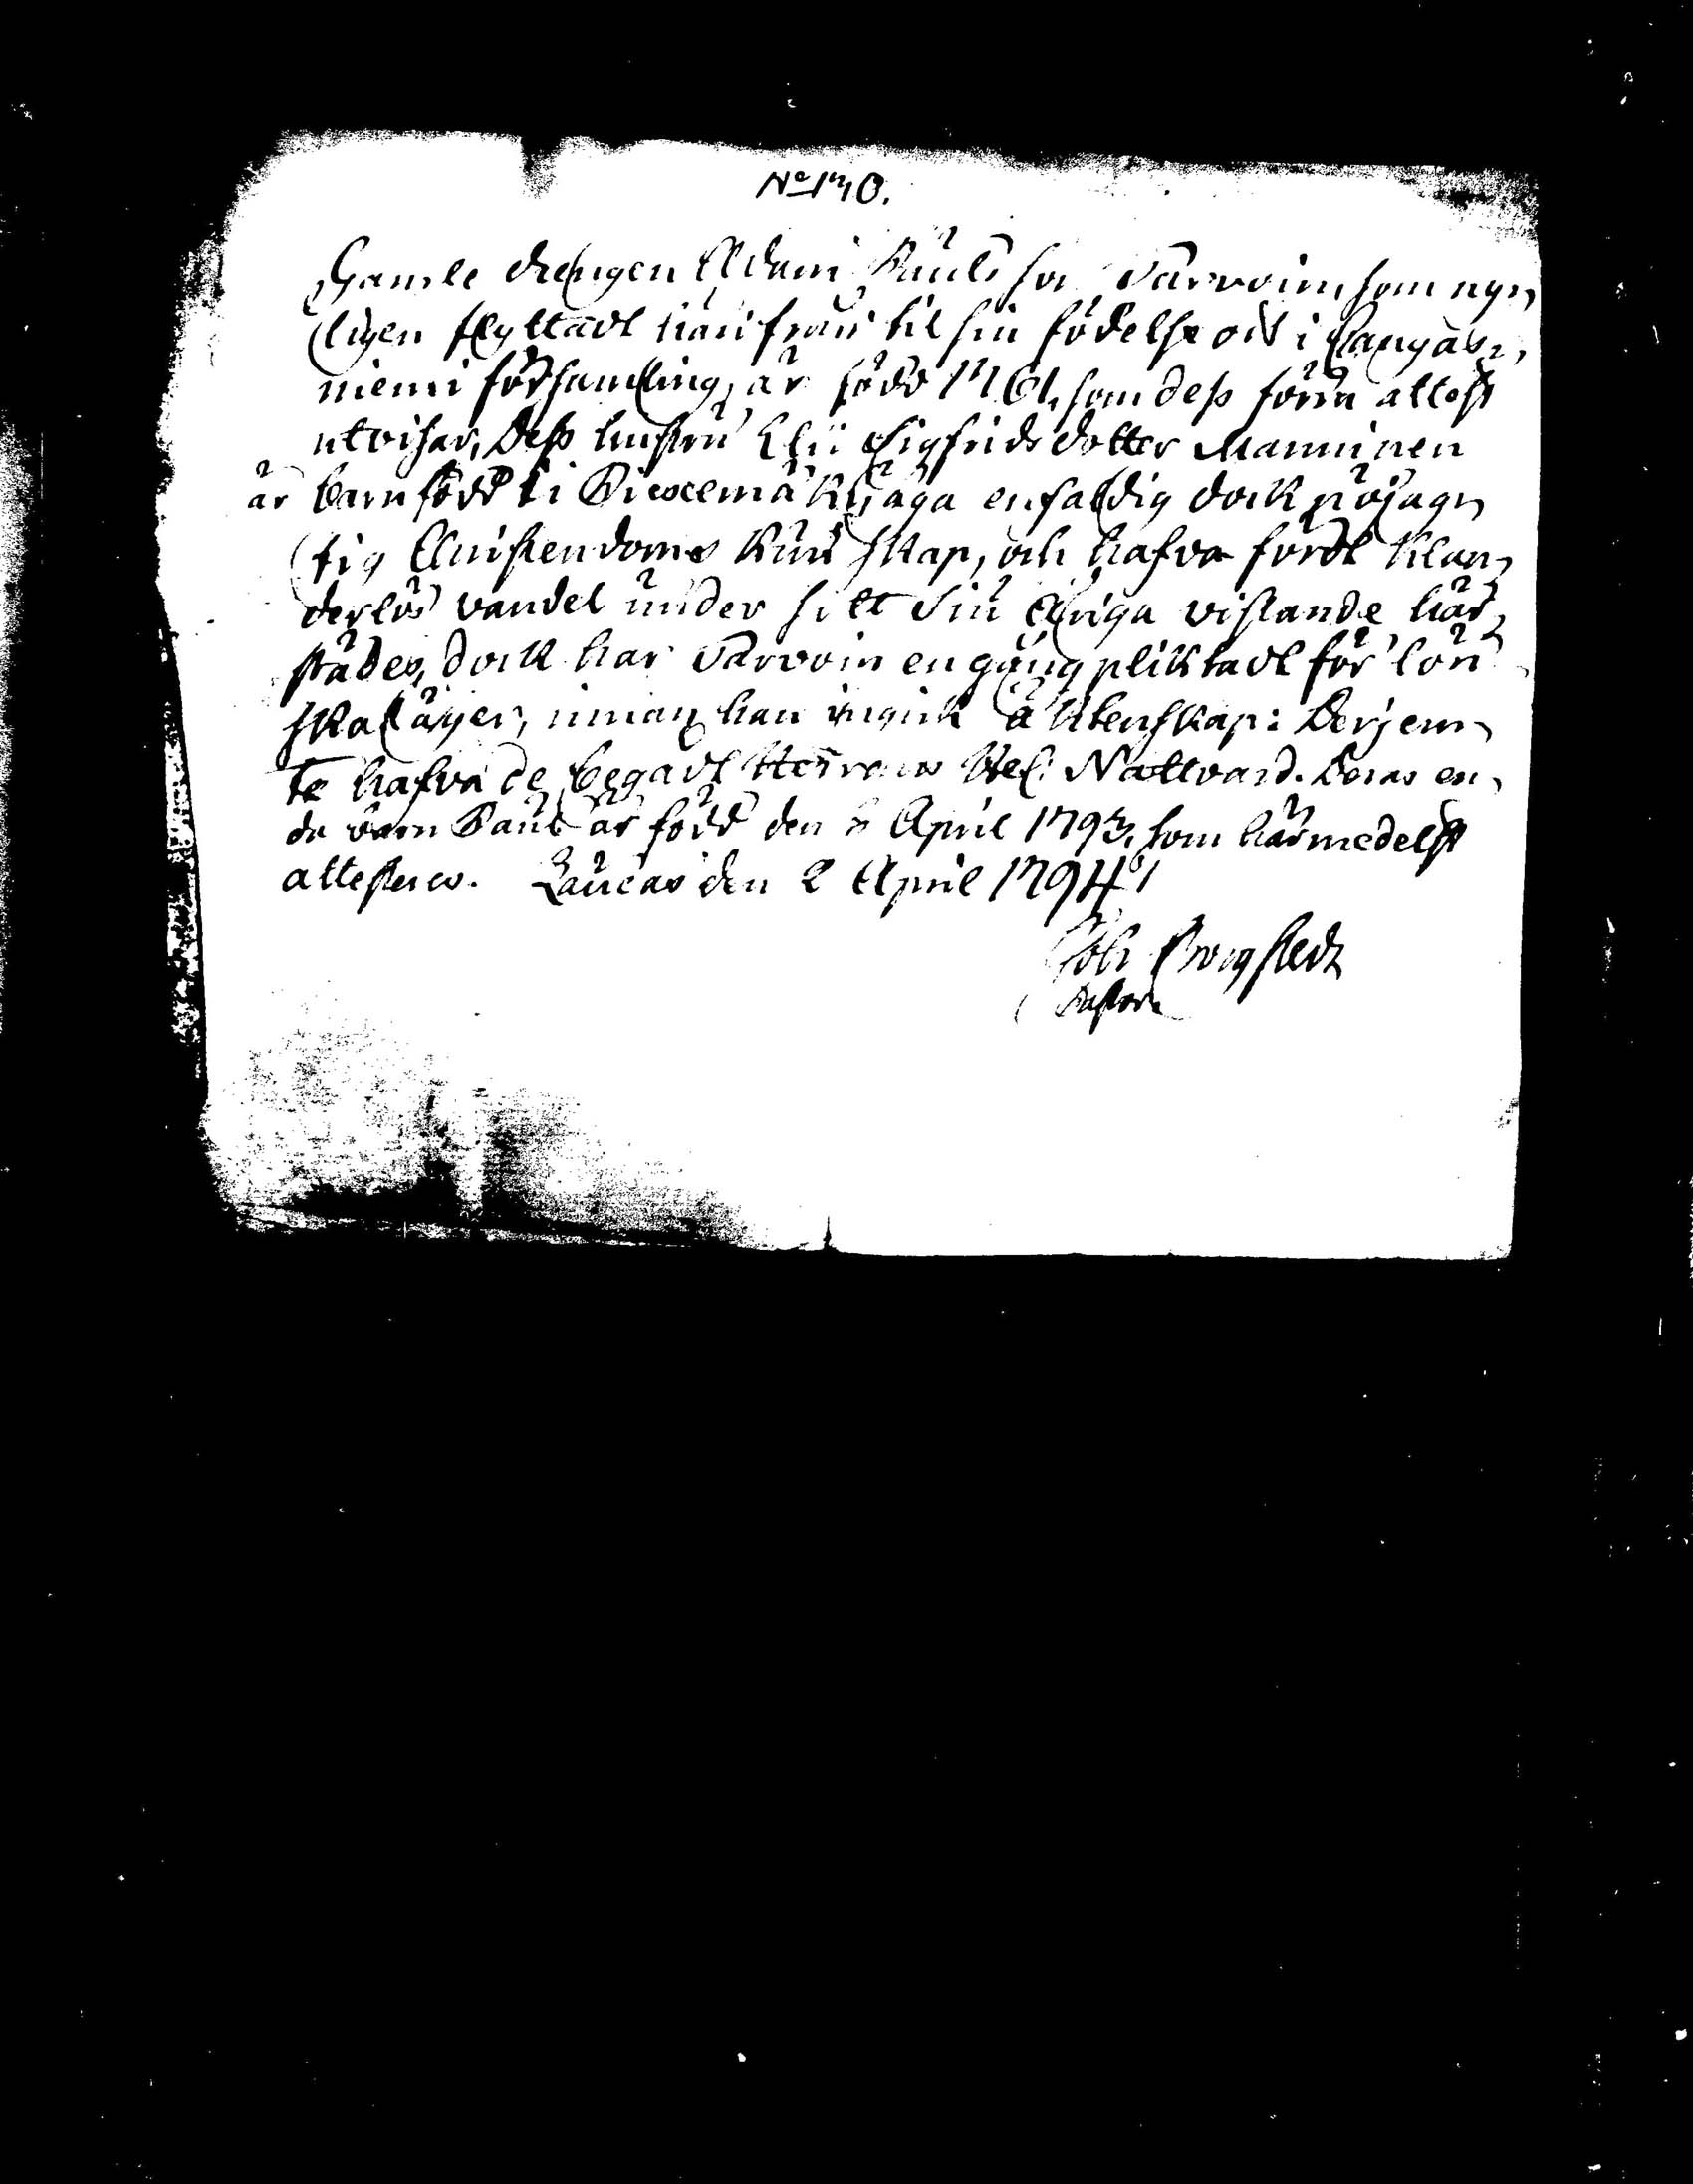 No 130.
Gamle drengen Adam Påuls son Tarvoin, som nyy
ligen flyttadt härifrån til sin födelse ort i Cangas,
niemi församling, är född 1761, som dess förra attest
utvisar, Dess hustru Elin Sigfridsdotter Manninen
är barnfödd i Piexemäki, äga enfaldig dock nöjagn
tig Christendoms kunskap, och hafva fördt klan,
derlös vandel under sitt 5riga vistande här,
städes, dock har Tarvoin en gång pliktadt för lön
skaläger, innan han ingick äktenskap: Derjem,
te hafva de begådt Herrans Hel. Nattvard. Deras en,
da barn Paul är född den 8 April 1793, som härmedelst
attesteras. Laucas den 2 April 1794
Joh Bergstedt
Pastor